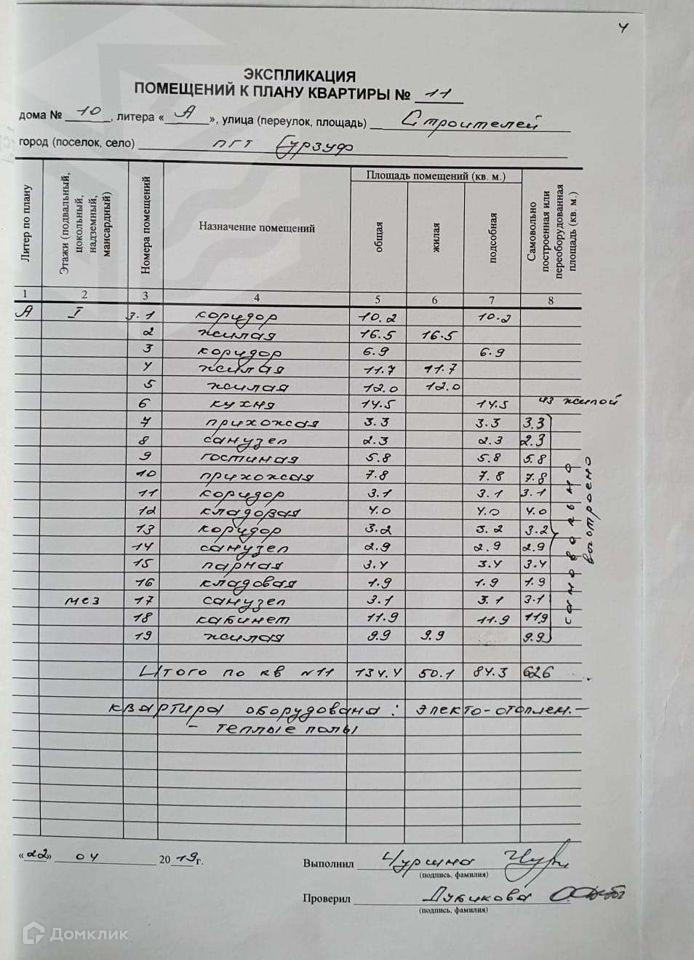 4
ЭКСПЛИКАЦИЯ
ПОМЕЩЕНИЙ К ПЛАНУ КВАРТИРЫ № 11
дома № 10, литера « А », улица (переулок, площадь) Строителей
город (поселок, село) пгт Гурзуф
Литер по плану Этажи (подвальный, цокольный, надземный, мансардный) Номера помещений Назначение помещений Площадь помещений (кв. м.) общая жилая подсобная Самовольно построенная или переоборудованная площадь (кв. м.)
1 2 3 4 5 6 7 8
А I 3.1 коридор 10.2 10.2
2 жилая 16.5 16.5
3 коридор 6.9 6.9
4 жилая 11.7 11.7
5 жилая 12.0 12.0
6 кухня 14.5 14.5 из жилой
7 прихожая 3.3 3.3 3.3
8 санузел 2.3 2.3 2.3
9 гостиная 5.8 5.8 5.8
10 прихожая 7.8 7.8 7.8
11 коридор 3.1 3.1 3.1
12 кладовая 4.0 4.0 4.0
13 коридор 3.2 3.2 3.2
14 санузел 2.9 2.9 2.9
15 парная 3.4 3.4 3.4
16 кладовая 1.9 1.9 1.9
мез 17 санузел 3.1 3.1 3.1
18 кабинет 11.9 11.9 119
19 жилая 9.9 9.9 9.9
самовольно
Итого по кв №11 134.4 50.1 84.3 626
квартира оборудована: электо-отоплен.-
- теплые полы
«22» 04 2019г.
Выполнил Чурина
(подпись, фамилия)
Проверил Дубикова
(подпись, фамилия)
Домклик